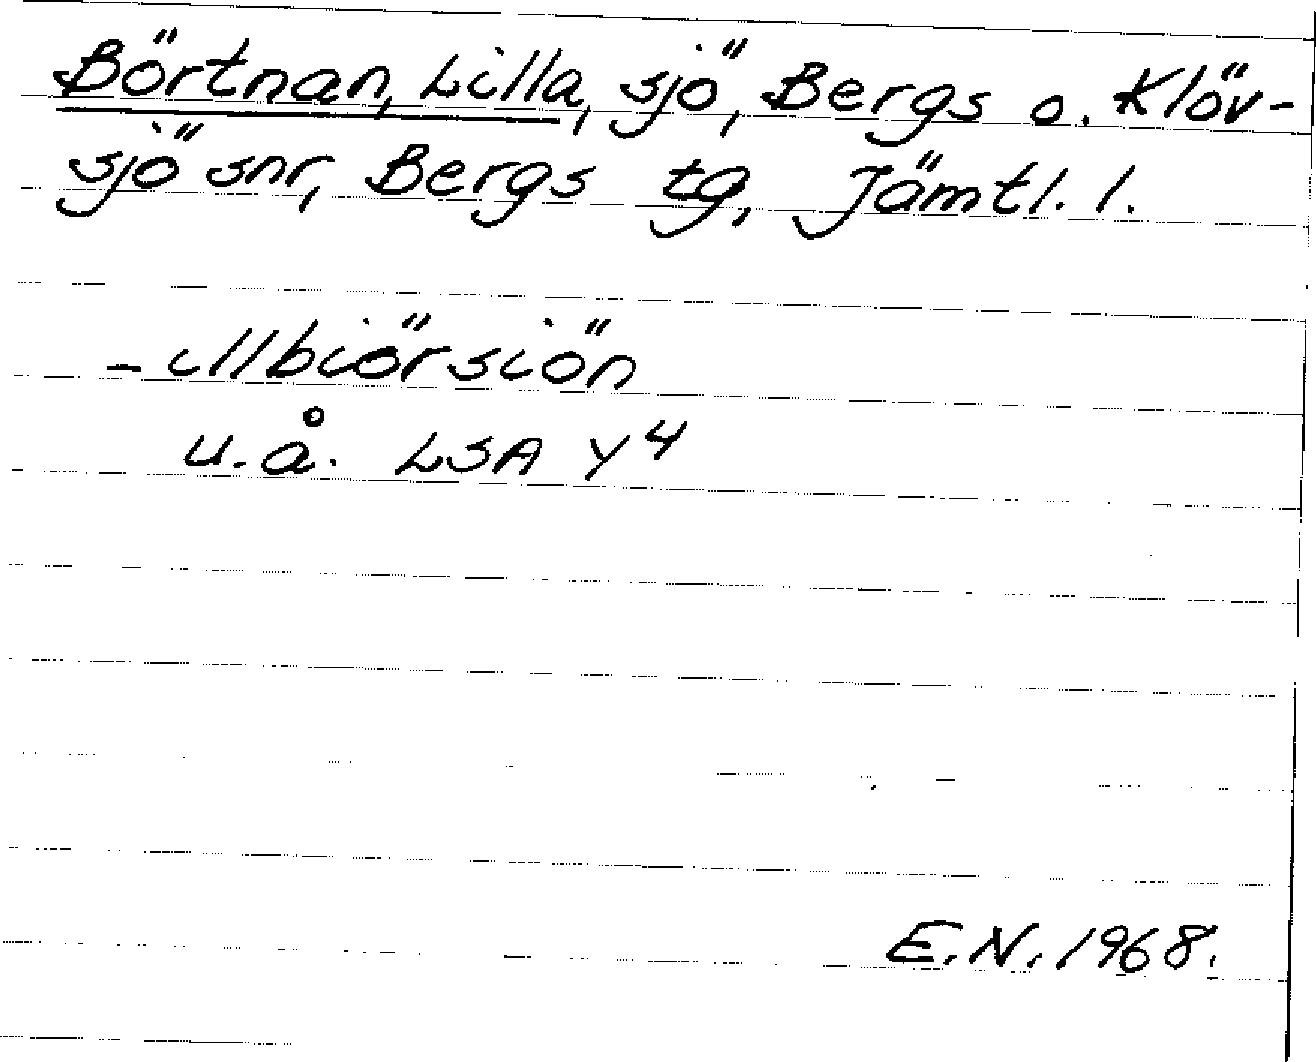 Börtnan, Lilla, sjö, Bergs o. Klöv-
sjö snr, Bergs tg, Jämtl. l.
- illbiörsiön
u.å. LSA Y4
E.N. 1968.